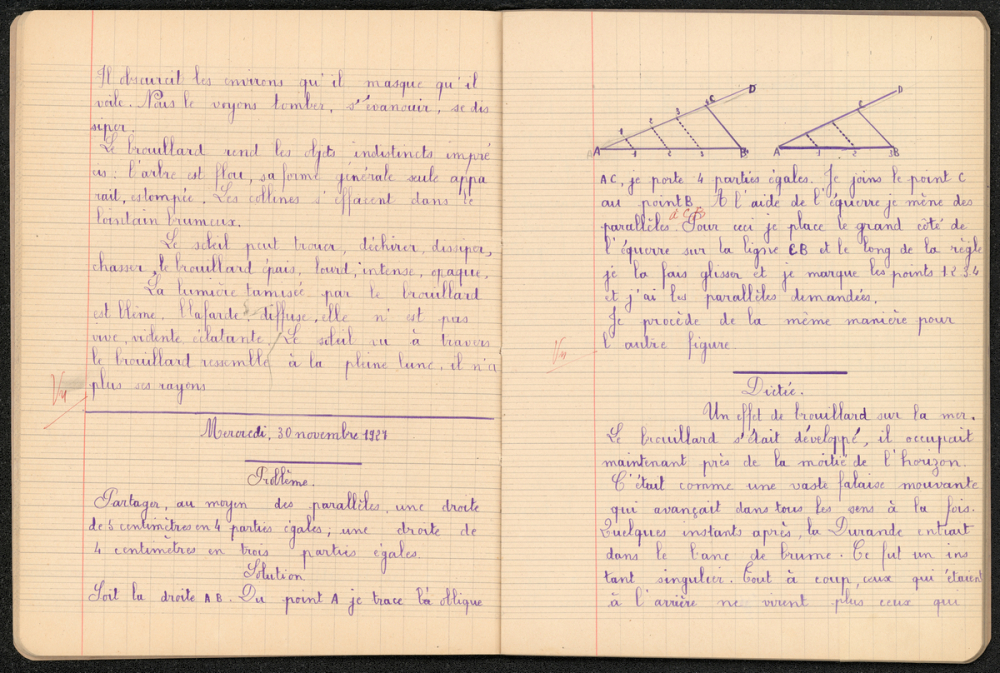 Il obscurcit les environs qu'il masque qu'il
voile. Nous le voyons tomber, s'évanouir, se dis
siper.
Le brouillard rend les objets indistincts impré
cis : l'arbre est flou, sa forme générale seule appa
rait, estompée. Les collines s'effacent dans le
lointain brumeux.
Le soleil peut trouer, déchirer, dissiper,
chasser, le brouillard épais, lourd, intense, opaque,
La lumière tamisée par le brouillard
est blême, blafarde, diffuse, elle n'est pas
vive, éclatante. Le soleil vu à travers
le brouillard ressemble à la pleine lune, il n'a
plus ses rayons
Vu
Mercredi, 30 novembre 1927
Problème.
Partager, au moyen des parallèles, une droite
de 5 centimètres en 4 parties égales ; une droite de
4 centimètres en trois parties égales.
Solution.
Soit la droite AB. Du point A je trace la oblique
A 1 2 3 B C D
A 1 2 3 B C D
AC, je porte 4 parties égales. Je joins le point C
au point B. A l'aide de l'équerre je mène des
parallèles à CB. Pour ceci je place le grand côté de
l'équerre sur la ligne CB et le long de la règle
je la fais glisser et je marque les points 1 2 3 4
et j'ai les parallèles demandées.
Je procède de la même manière pour
l'autre figure.
Vu
Dictée.
Un effet de brouillard sur la mer.
Le brouillard s'était développé, il occupait
maintenant près de la moitié de l'horizon.
C'était comme une vaste falaise mouvante
qui avançait dans tous les sens à la fois.
Quelques instants après, la Durande entrait
dans le banc de brume. Ce fut un ins
tant singulier. Tout à coup, ceux qui étaient
à l'arrière ne virent plus ceux qui